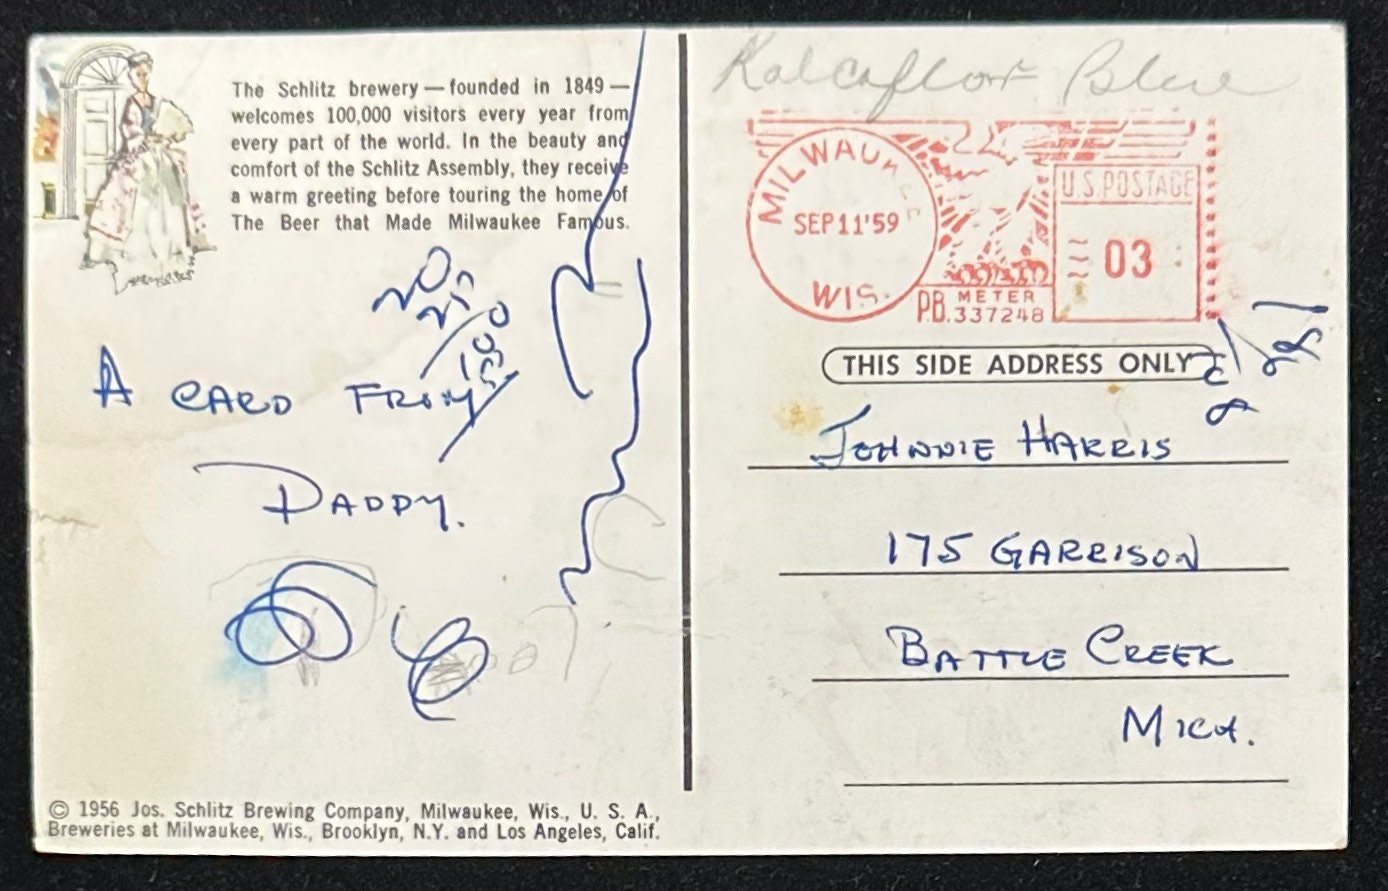 The Schlitz brewery — founded in 1849 —
welcomes 100,000 visitors every year from
every part of the world. In the beauty and
comfort of the Schlitz Assembly, they receive
a warm greeting before touring the home of
The Beer that Made Milwaukee Famous.
A CARD FROM
DADDY.
© 1956 Jos. Schlitz Brewing Company, Milwaukee, Wis., U. S. A.,
Breweries at Milwaukee, Wis., Brooklyn, N.Y. and Los Angeles, Calif.
Blue
MILWAUKEE
SEP 11 '59
WIS.
U.S. POSTAGE
03
P.B. METER
337248
THIS SIDE ADDRESS ONLY
JOHNNIE HARRIS
175 GARRISON
BATTLE CREEK
MICH.